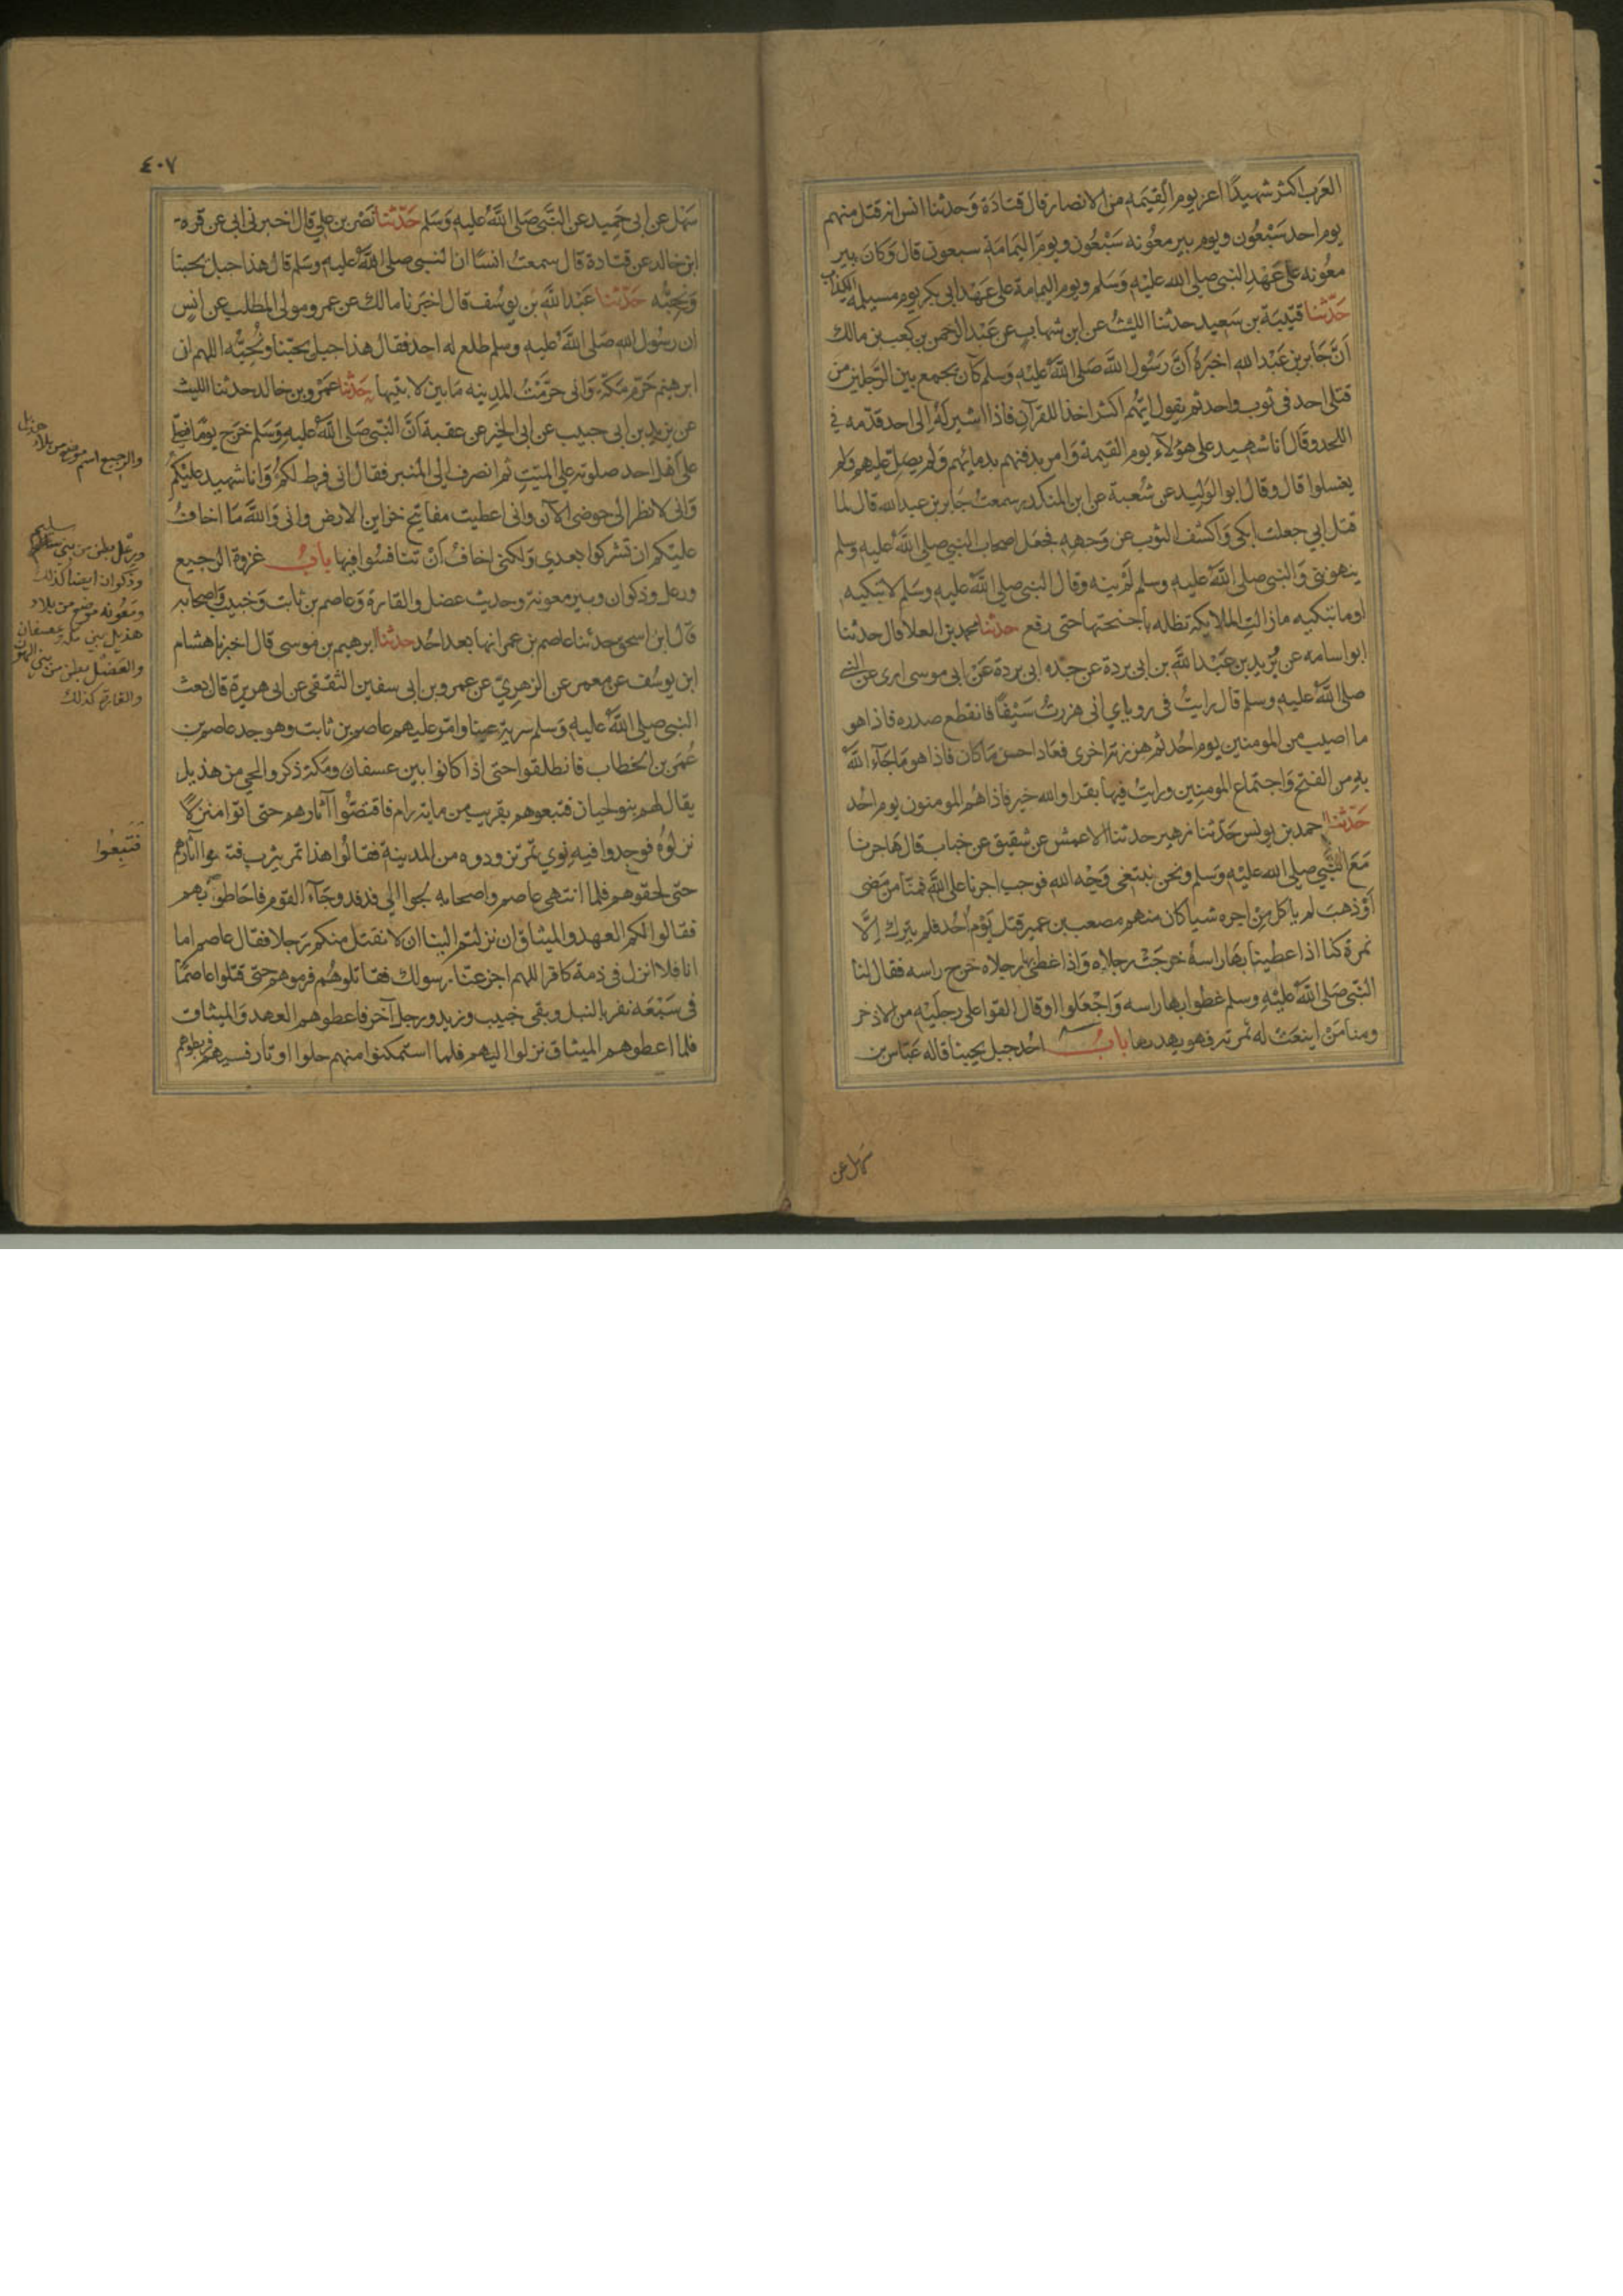 العَرب اكثر شهيدًا اعز يوم القِيمَه من الانصار قال قتادَة وَحدثنا انس انه قتل منهم
يوم احد سَبْعُون ويوم بير معُونه سَبْعُون ويومَ اليَمامَة سبعون قال وَكانَ بير
معُونه على عَهْدِ النبي صلى الله عليْهِ وَسَلم ويوم اليمامة على عَهْد ابي بكر يوم مسيلمه الكذاب
حَدّثنا قتيبَة بن سَعيد حدثنا الليْثُ عن ابن شهاب عن عَبْد الرحمن بن كعب بن مالك
اَنَّ جَابر بن عَبْد الله اخبَرَهُ اَنَّ رَسُول اللَّهَ صَلى اللَّهُ عليْهِ وَسَلم كان يجمع بين الرَّجلين من
قتلى احد فى ثوب واحد ثم يقول ايّهُم اكثر اخذا للقرآن فاذا اشير لَهُ الى احد قدّمه في
اللحد وقال اَنا شهيد على هؤلآء يوم القيمة وَامر بدفنهم بدمائهم وَلم يصل عليهم ولم
يغسلوا قال وقال ابو الوَليد عن شُعبة عن ابن المنكدر سمعتُ جَابر بن عبد الله قال لما
قتل ابي جعلت ابكى وَاكشف الثوب عن وَجهه فجعل اصحاب النبي صلى اللَّهُ عليه وسلم
ينهوننى وَالنبي صلى اللَّهُ عليه وسلم لم ينه وقال النبي صلى اللَّهُ عليه وسَلم لا تبكيه
اوما تبكيه ما زالت الملايكة تظله باجنحتها حتى رفع حدثنا محمد بن العلا قال حدثنا
ابو اسامه عن بُرَيد بن عَبْد اللَّه بن ابى بردة عن جده ابى بردة عَنْ ابي موسى ارى عن النبي
صلى اللَّهُ عليه وسلم قال رايتُ فى روياي انى هززتُ سَيْفًا فانقطع صدره فاذا هو
ما اصيب من المومنين يوم احُد ثم هززته اخرى فعَاد احسن مَا كان فاذا هو مَا جَآءَ اللَّهُ
بهِ من الفتح وَاجتماع المومنِين ورايتُ فيها بقرا والله خير فاذا هُم المومنون يوم احُد
حَدّثنا احمد بن يونس حَدّثنا زهير حدثنا الاعمش عن شقيق عن خباب قال هَاجرنا
مَعَ النَّبي صلى الله عليْهِ وَسَلم ونحن نبتغى وَجْه الله فوجب اجرنا على اللَّه فمنّا من مضى
اَوْ ذهبَ لم ياكل من اجره شيا كان منهم مصعب بن عمير قتل يَوْم احُد فلم يترك اِلَّا
نمرة كنا اذا غطينا بهَا راسهُ خرجَتْ رجلاه وَاذا غطى بها رجلاه خرج راسه فقال لنا
النّبى صَلى اللَّهُ عليْهِ وسلم غطوا بها راسه وَاجْعَلوا او قال القوا على رجليْه من الاذخر
ومنا مَنْ اينعَتْ له ثمرته فهو يهدبها بابُ احُد جبل يحبنا قاله عَبّاس بن
سَهْل عن
٤٠٧
سَهْل عن ابى حميد عن النَّبي صَلى اللَّهُ عليهِ وَسَلم حَدّثنا نَصْر بن على قال اخبرنى ابى عن قره
ابن خالد عن قتادة قال سمعتُ انسًا ان النبى صلى اللَّهُ عليهِ وسَلم قال هذا جبل يحبنا
وَنحبُّه حَدّثنا عَبْد اللَّه بْن يوسُف قال اخبَرنا مالك عن عمرو مولى المطلب عن انس
ان رسُول الله صَلى اللَّهُ عليهِ وسلم طلع له احد فقال هذا جبل يحبّنا ونُحِبُّه اللهم ان
ابرهيم حَرّم مَكّة وَانى حرّمْتُ المدِينه مَا بين لا بتيها حَدّثنا عَمْرو بن خالد حدثنا الليث
عن يزيد بن ابى حبيب عن ابى الخير عن عقبة اَنَّ النّبي صَلى اللَّهُ عليهِ وَسَلم خرج يومًا فصلّى
على اَهْل احد صلوته على الميّت ثم انصرف الى المنبر فقال انى فرط لكمْ وَانا شهيد عليْكم
وَانى لانظر الى حوضى الآن وانى اعطيت مفاتيح خزاين الارض وانى وَاللَّهَ مَا اخافُ
عليْكم ان تشركوا بعدي وَلكنى اخافُ اَنْ تتنافسُوا فيها بابُ غزوة الرجيع
ورعل وذكوان وبير معونة وحديث عضل والقارة وَعاصم بن ثابت وَخبيب وَاصحابه
قال ابن اسحق حدثنا عاصم بن عمر انها بعد احُد حدثنا ابرهيم بن موسى قال اخبرنا هشام
ابن يوسُف عن معمر عن الزهريّ عن عمرو بن ابى سفين الثقفى عن ابى هريرة قال بعث
النبى صلى اللَّهُ عليهِ وَسلم سرية عينا وامّر عليهم عاصم بن ثابت وهو جد عاصم بن
عُمَر بن الخطاب فانطلقوا حتى اذا كانوا بين عسفان ومكة ذكروا لحي من هذيل
يقال لهم بنو لحيان فتبعوهم بقريب من ماية رام فاقتصّوا آثارهم حتى اتوا منزلًا
نزلوُه فوجدوا فيه نوي تمر تزودوه من المدينة فقالوا هذا تمر يثرب فتبعوا آثارهم
حتى لحقوهم فلما انتهى عاصم واصحابه لجوا الى فدفد وجَآء القوم فاحَاطوا بهم
فقالوا لكم العهد والميثاق ان نزلتم الينا ان لا نقتل منكم رَجلا فقال عاصم اما
انا فلا انزل فى ذمة كافر اللهم اخبر عنا رسولك فقاتلوهُم فرموهم حتى قتلوا عاصمًا
فى سَبْعَه نفر بالنبل وبقى خبيب وزيد ورجل آخر فاعطوهم العهد وَالميثاق
فلما اعطوهم الميثاق نزلوا اليهم فلما استمكنوا منهم حلوا اوتار قسيهم فربطوهم
والرجيع اسم موضع من بلاد هذيل
ورعل بطن من بني سليم
وذكوان ايضا كذلك
ومَعُونه موضع من بلاد
هذيل بين مكة وعسفان
والعَضَل بطن من بني الهون
والقارة كذلك
فَتَبِعُوا